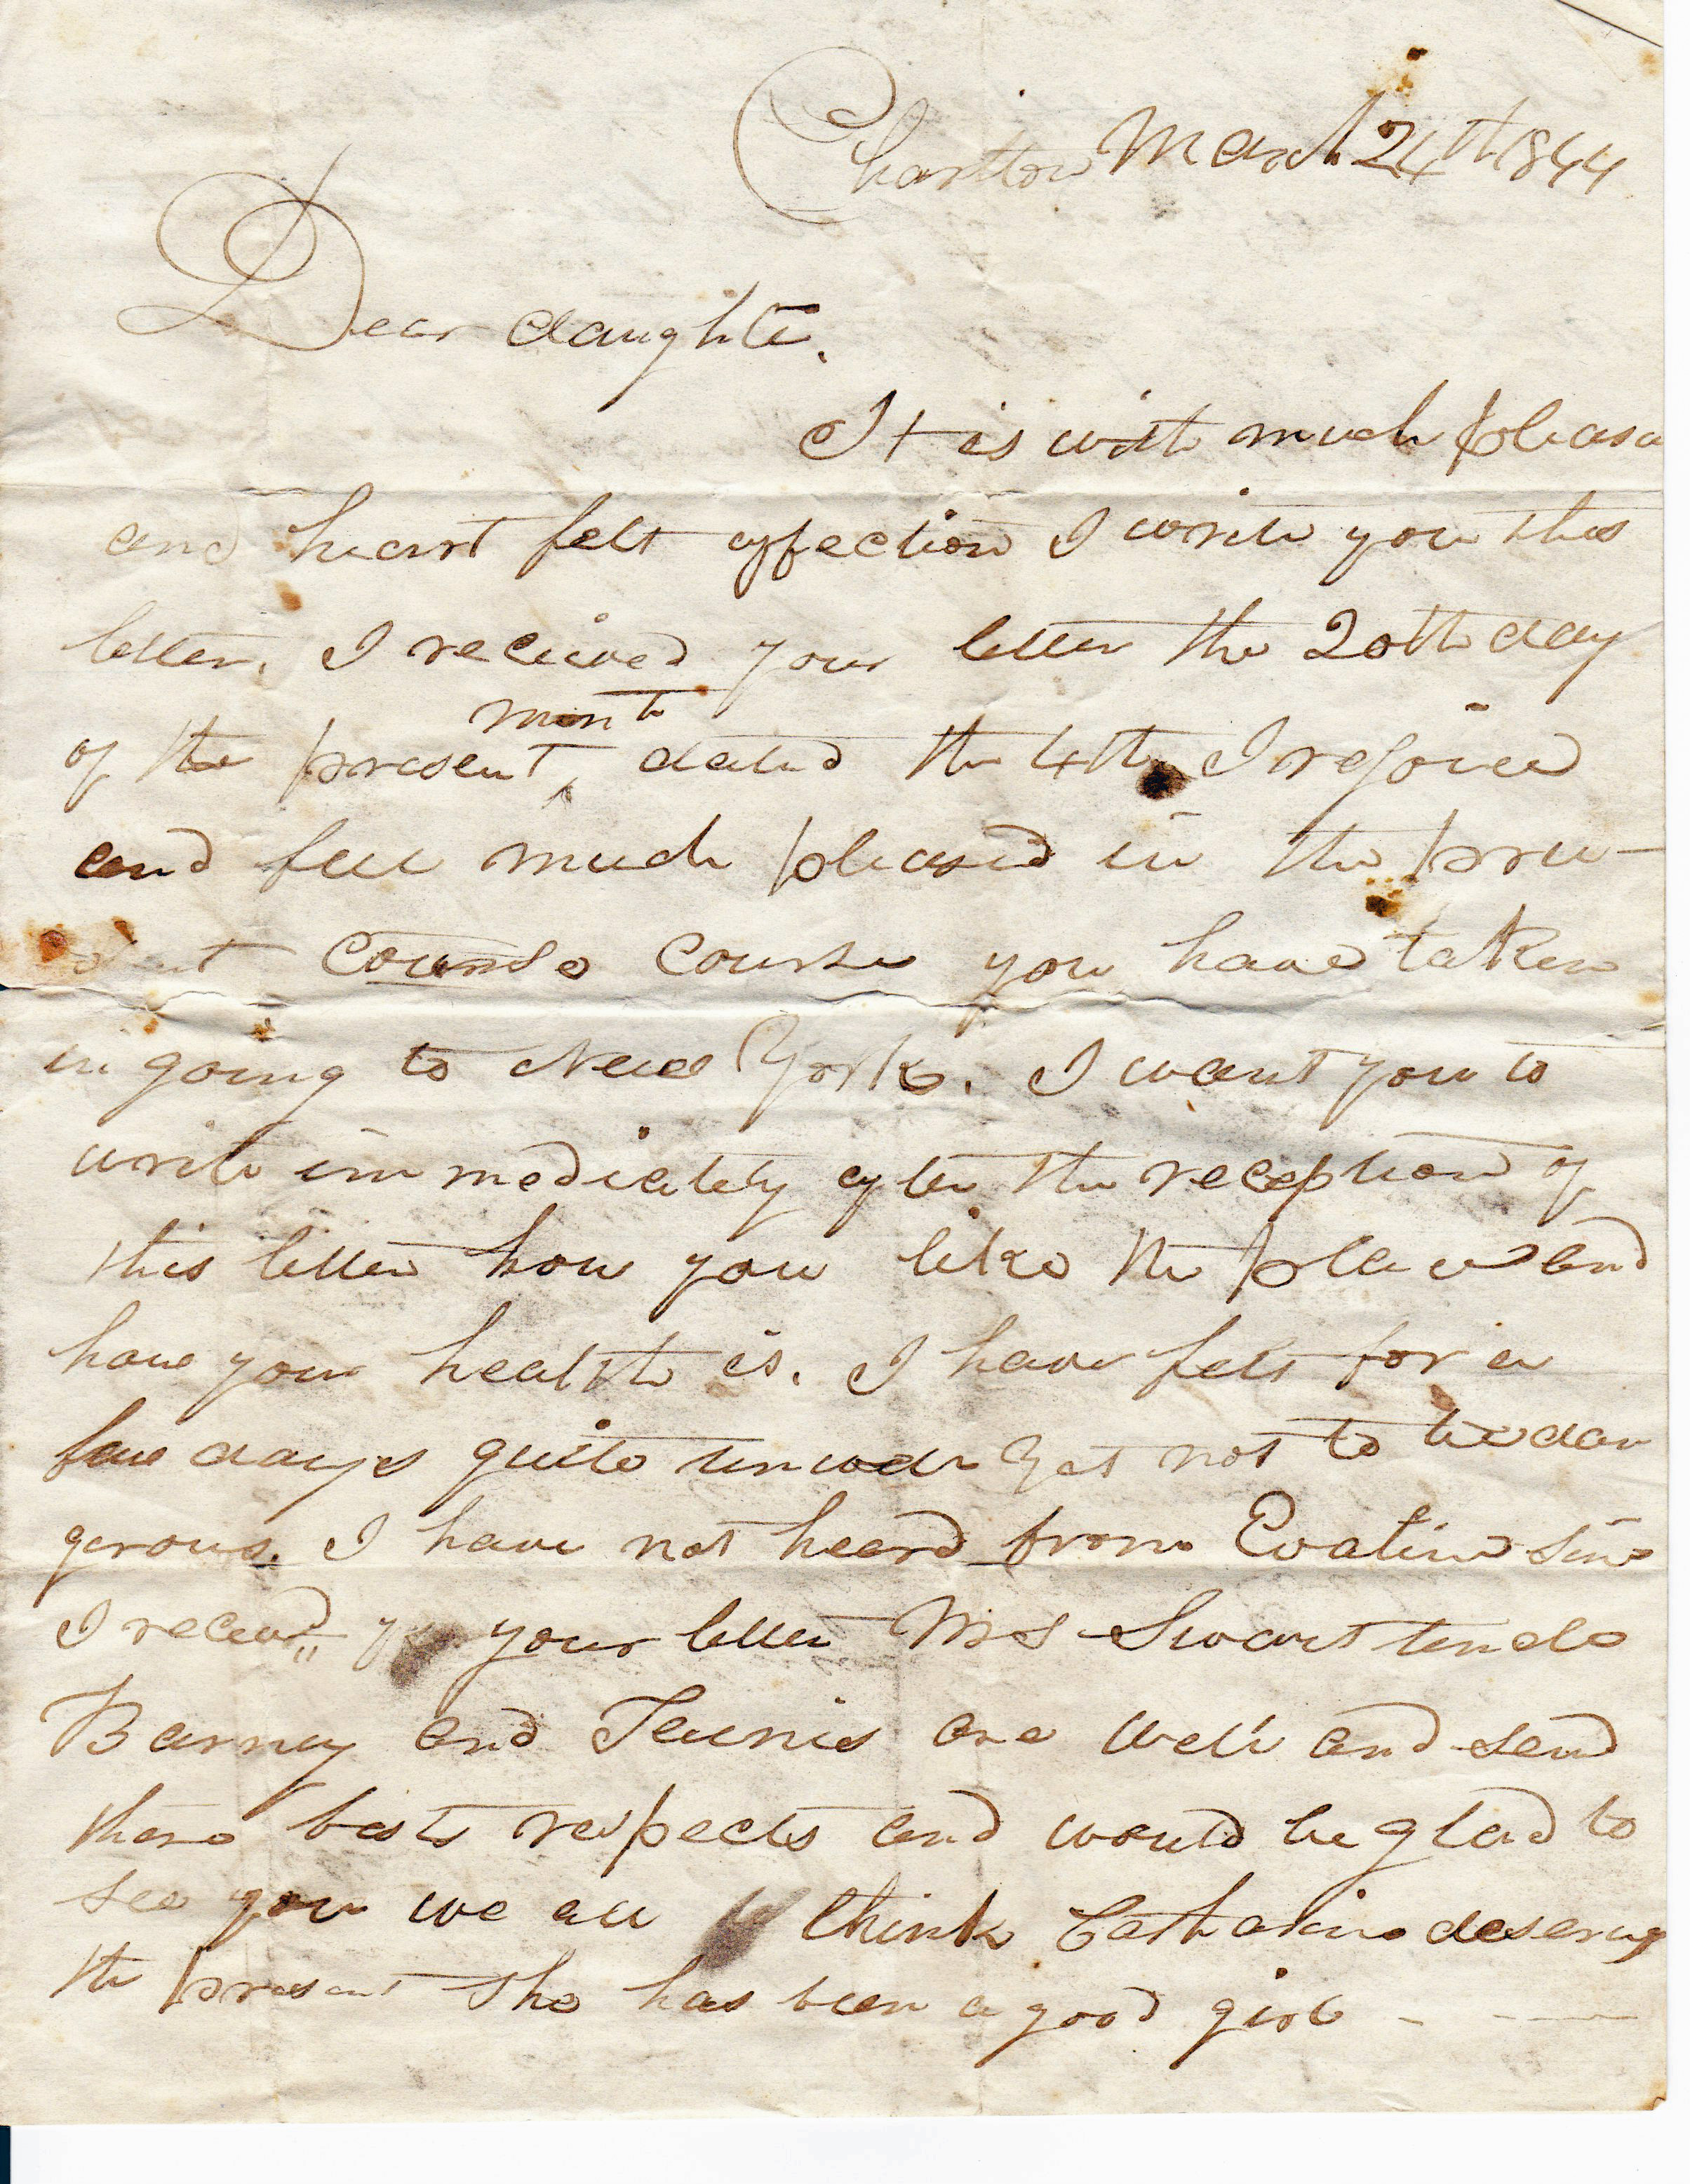 Charlton March 24th 1844
Dear daughter.
It is with much pleasu
and heart felt affection I write you this
letter. I recieved your letter the 20th day
month
of the present, dated the 4th I rejoice
and feel much pleased in the pru-
dent course course you have taken
in going to New York. I want you to
write immediately after the reception of
this letter how you like the place and
how your health is. I have felt for a
few days quite unwell yet not to be dan
gerous. I have not heard from Evaline sinc
I receivd your letter Mrs Swart
Barney and Teunis are well and send
there bests respects and would be glad to
see you we all think Catharine deserves
the present she has been a good girl - - —